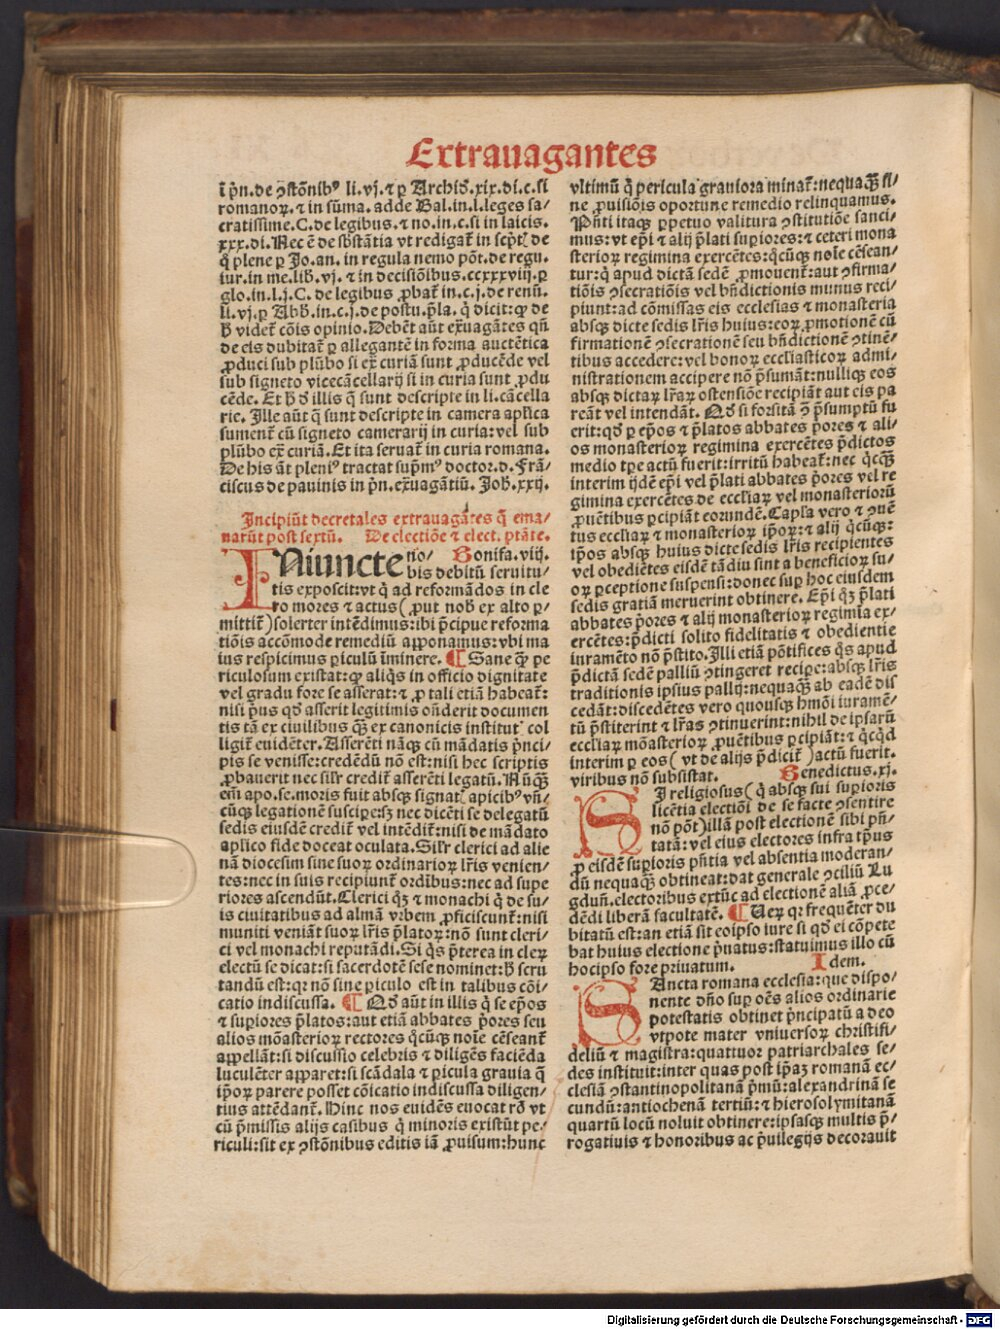 Extrauagantes
ī p̄n. de ꝯstōnibꝰ li. vj. ⁊ ꝑ Archid̄. xix. di. c. si
romanoꝝ. ⁊ in sūma. adde Bal. in. l. leges sa⸗
cratissime. C. de legibus. ⁊ no. in. c. si in laicis.
xxx. di. Nec ē de sb̄stātia vt redigat̄ in scpt̄. de
q̄ plene ꝑ Jo. an. in regula nemo pōt. de regu.
iur. in me. lib. vj. ⁊ in decisiōibus. ccxxxviij. ꝑ
glo. in. l. j. C. de legibus ꝓbat̄ in. c. j. de renū.
li. vj. ꝑ Abb̄. in. c. j. de postu. p̄la. q̄ dicit: ꝙ de
h̄ videt̄ cōis opinio. Debēt aūt ex̄uagātes qn̄
de eis dubitat̄ ꝑ allegantē in forma auctētica
ꝓduci sub plūbo si ex̄ curiā sunt ꝓducēde vel
sub signeto vicecācellarij si in curia sunt ꝓdu
cēde. Et h̄ d̄ illis q̄ sunt descripte in li. cācella
rie. Ille aūt q̄ sunt descripte in camera aplica
sument̄ cū signeto camerarij in curia: vel sub
plūbo ex̄ curiā. Et ita seruat̄ in curia romana.
De his āt pleniꝰ tractat sup̄mꝰ doctor. d. Frā⸗
ciscus de pauinis in p̄n. ex̄uagātiū. Joh̄. xxij.
Incipiūt decretales extrauagātes q̄ ema⸗
narūt post sextū. De electiōe ⁊ elect. ptāte.
INiuncte no⸗ Bonifa. viij.
bis debitū seruitu⸗
tis exposcit: vt q̄ ad reformādos in cle
ro mores ⁊ actus (ꝓut nob̄ ex alto ꝑ⸗
mittit̄) solerter intēdimus: ibi p̄cipue reforma
tiōis accōmode remediū apponamus: vbi ma
ius respicimus ꝑiculū īminere. ¶ Sane qꝫ pe
riculosum existat: ꝙ aliq̄s in officio dignitate
vel gradu fore se asserat: ⁊ ꝓ tali etiā habeat̄:
nisi pꝰ qd̄ asserit legitimis on̄derit documen
tis tā ex ciuilibus qꝫ̄ ex canonicis institutꝭ col
ligit̄ euidēter. Asserēti nāqꝫ cū mādatis p̄nci⸗
pis se venisse: credēdū nō est: nisi hec scriptis
ꝓbauerit nec silr̄ credit̄ asserēti legatū. Nūqꝫ̄
em̄ apo. se. moris fuit absqꝫ signatꝭ apicibꝰ vn̄
cūqꝫ legationē suscipere: nec dicēti se delegatū
sedis eiusdē credit̄ vel intēdit̄: nisi de mādato
aplico fide doceat oculata. Silr̄ clerici ad alie
nā diocesim sine suoꝝ ordinarioꝝ lr̄is venien⸗
tes: nec in suis recipiunt̄ ordībus: nec ad supe
riores ascendūt. Clerici qꝫ ⁊ monachi q̄ de su⸗
is ciuitatibus ad almā vrbem ꝓficiscunt̄: nisi
muniti veniāt suoꝝ lr̄is p̄latoꝝ: nō sunt cleri⸗
ci vel monachi reputādi. Si q̄s p̄terea in cleꝝ
electū se dicat: si sacerdotē sese nominet: h̄ scru
tandū est: qꝛ nō sine ꝑiculo est in talibus cōi⸗
catio indiscussa. ¶ Qd̄ aūt in illis q̄ se ep̄os
⁊ supiores p̄latos: aut etiā abbates p̄ores seu
alios mōasterioꝝ rectores q̄cūqꝫ noīe cēseant̄
appellāt: si discussio celebris ⁊ diligēs faciēda
luculēter apparet: si scādala ⁊ ꝑicula grauia q̄
ip̄oꝝ parere posset cōicatio indiscussa diligen⸗
tius attēdant̄. Hinc nos euidēs euocat rō vt
cū p̄missis alijs casibus q̄ minoris existūt pe⸗
riculi: sit ex ꝯstōnibus editis iā ꝓuisum: hunc
vltimū q̄ pericula grauiora minat̄: nequaqꝫ̄ si⸗
ne ꝓuisiōis oportune remedio relinquamus.
Pn̄ti itaqꝫ ꝑpetuo valitura ꝯstitutiōe sanci⸗
mus: vt ep̄i ⁊ alij p̄lati supiores: ⁊ ceteri mona
sterioꝝ regimina exercētes: q̄cūqꝫ noīe cēsean⸗
tur: q̄ apud dictā sedē ꝓmouent̄: aut ꝯfirma⸗
tiōis ꝯsecratiōis vel bn̄dictionis munus reci⸗
piunt: ad cōmissas eis ecclesias ⁊ monasteria
absqꝫ dicte sedis lr̄is huius: eoꝝ ꝓmotionē cū
firmationē ꝯsecrationē seu bn̄dictionē ꝯtinē⸗
tibus accedere: vel bonoꝝ eccl̄iasticoꝝ admi⸗
nistrationem accipere nō p̄sumāt: nulliqꝫ eos
absqꝫ dictaꝝ lr̄aꝝ ostensiōe recipiāt aut eis pa
reāt vel intendāt. Qd̄ si forsitā ꝯ̄ p̄sumptū fu
erit: qd̄ ꝑ ep̄os ⁊ p̄latos abbates p̄ores ⁊ ali⸗
os monasterioꝝ regimina exercētes p̄dictos
medio tp̄e actū fuerit: irritū habeat̄: nec q̄cqꝫ̄
interim ijdē ep̄i vel p̄lati abbates p̄ores vel re
gimina exercētes de eccl̄iaꝝ vel monasterioꝝ
ꝓuētibus ꝑcipiāt eorundē. Capl̄a vero ⁊ ꝯuē
tus eccl̄iaꝝ ⁊ monasterioꝝ ip̄oꝝ: ⁊ alij q̄cūqꝫ:
ip̄os absqꝫ huius dicte sedis lr̄is recipientes
vel obediētes eisdē tādiu sint a beneficioꝝ su⸗
oꝝ ꝑceptione suspensi: donec sup hoc eiusdem
sedis gratiā meruerint obtinere. Ep̄i qꝫ p̄lati
abbates p̄ores ⁊ alij monasterioꝝ regimīa ex⸗
ercētes: p̄dicti solito fidelitatis ⁊ obedientie
iuramēto nō p̄stito. Illi etiā pōtifices q̄s apud
p̄dictā sedē palliū ꝯtingeret recipe: absqꝫ lr̄is
traditionis ipsius pallij: nequaqꝫ̄ ab eadē dis
cedāt: discedētes vero quousqꝫ hmōi iuramē⸗
tū p̄stiterint ⁊ lr̄as ꝯtinuerint: nihil de ipsarū
eccl̄iaꝝ mōasterioꝝ ꝓuētibus ꝑcipiāt: ⁊ q̄cqd̄
interim ꝑ eos (vt de alijs p̄dicit̄) actū fuerit.
viribus nō subsistat. Benedictus. xj.
SI religiosus (q̄ absqꝫ sui supioris
licētia electiōi de se facte ꝯsentire
nō pōt) illā post electionē sibi pn̄⸗
tatā: vel eius electores infra tp̄us
ꝓ eisdē supioris pn̄tia vel absentia moderan⸗
dū nequaqꝫ̄ obtineat: dat generale ꝯciliū Lu
gdun̄. electoribus extūc ad electionē aliā ꝓce⸗
dēdi liberā facultatē. ¶ Ueꝝ qꝛ frequēter du
bitatū est: an etiā sit eoipso iure si qd̄ ei cōpete
bat huius electione p̄uatus: statuimus illo cū
hocipso fore priuatum. Idem.
SAncta romana ecclesia: que dispo⸗
nente dn̄o sup oēs alios ordinarie
potestatis obtinet p̄ncipatū a deo
vtpote mater vniuersoꝝ christifi⸗
deliū ⁊ magistra: quattuor patriarchales se⸗
des instituit: inter quas post ip̄aꝫ romanā ec⸗
clesiā ꝯstantinopolitanā p̄mū: alexandrinā se
cundū: antiochenā tertiū: ⁊ hierosolymitanā
quartū locū noluit obtinere: ipsasqꝫ multis p̄⸗
rogatiuis ⁊ honoribus ac p̄uilegijs decorauit
Digitalisierung gefördert durch die Deutsche Forschungsgemeinschaft - DFG